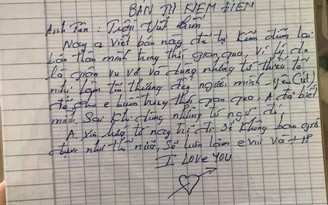 BẢN TỰ KIỂM ĐIỂM
Anh Tên : Trần Viết
Nay a viết bản này để tự kiểm điểm lại
bản thân mình trong thời gian qua, Vì lý do
là quan vợ và dùng những từ thiếu
như lòng tin thương đến người mình yêu (vợ)
để cho e buồn trong thời gian qua, A đã biết
mình Sai khi dùng những từ ngữ đó,
A xin hứa từ nay trở đi sẽ không bao giờ
như thế nữa, Sẽ luôn làm e vui và HP
I LOVE YOU